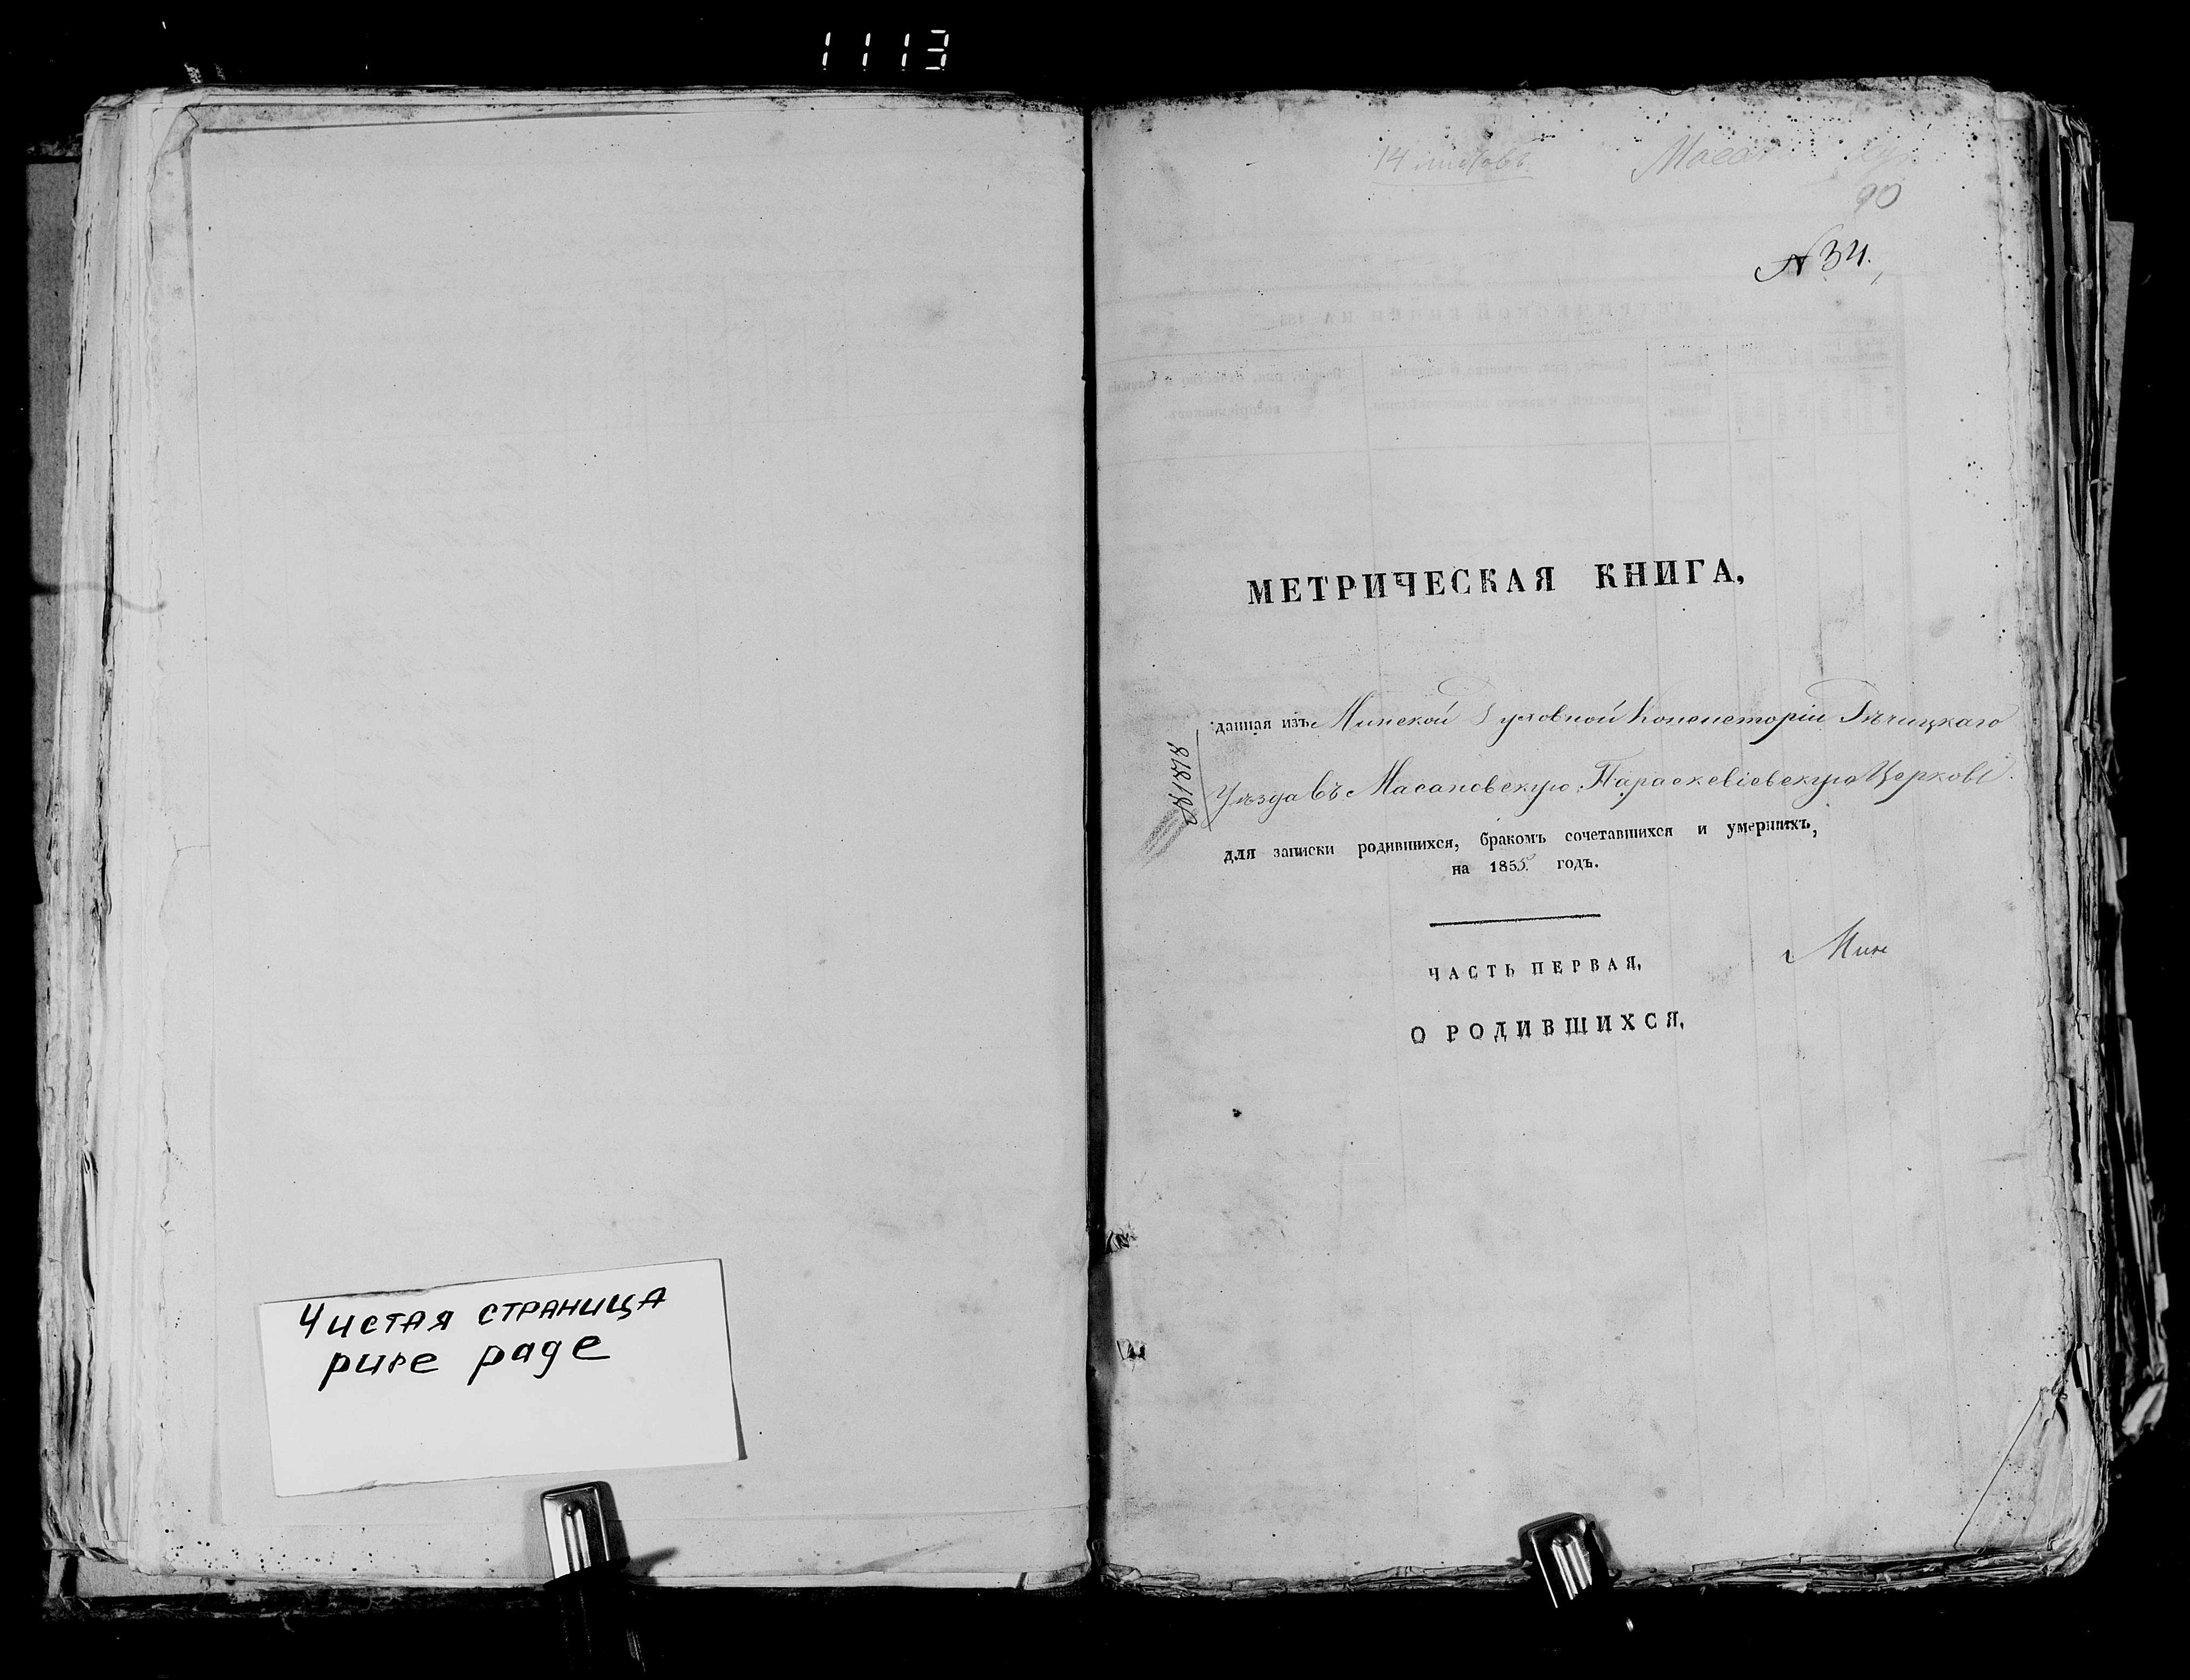 1113
Чистая страница
pure page
14 листовъ
90
№ 34.
МЕТРИЧЕСКАЯ КНИГА,
данная изъ Минской Духовной Консисторіи Рѣчицкаго
Уѣзда въ Масановскую Параскевіевскую Церковь
для записки родившихся, бракомъ сочетавшихся и умершихъ,
на 1855 годъ.
ЧАСТЬ ПЕРВАЯ,
Мин
О РОДИВШИХСЯ,